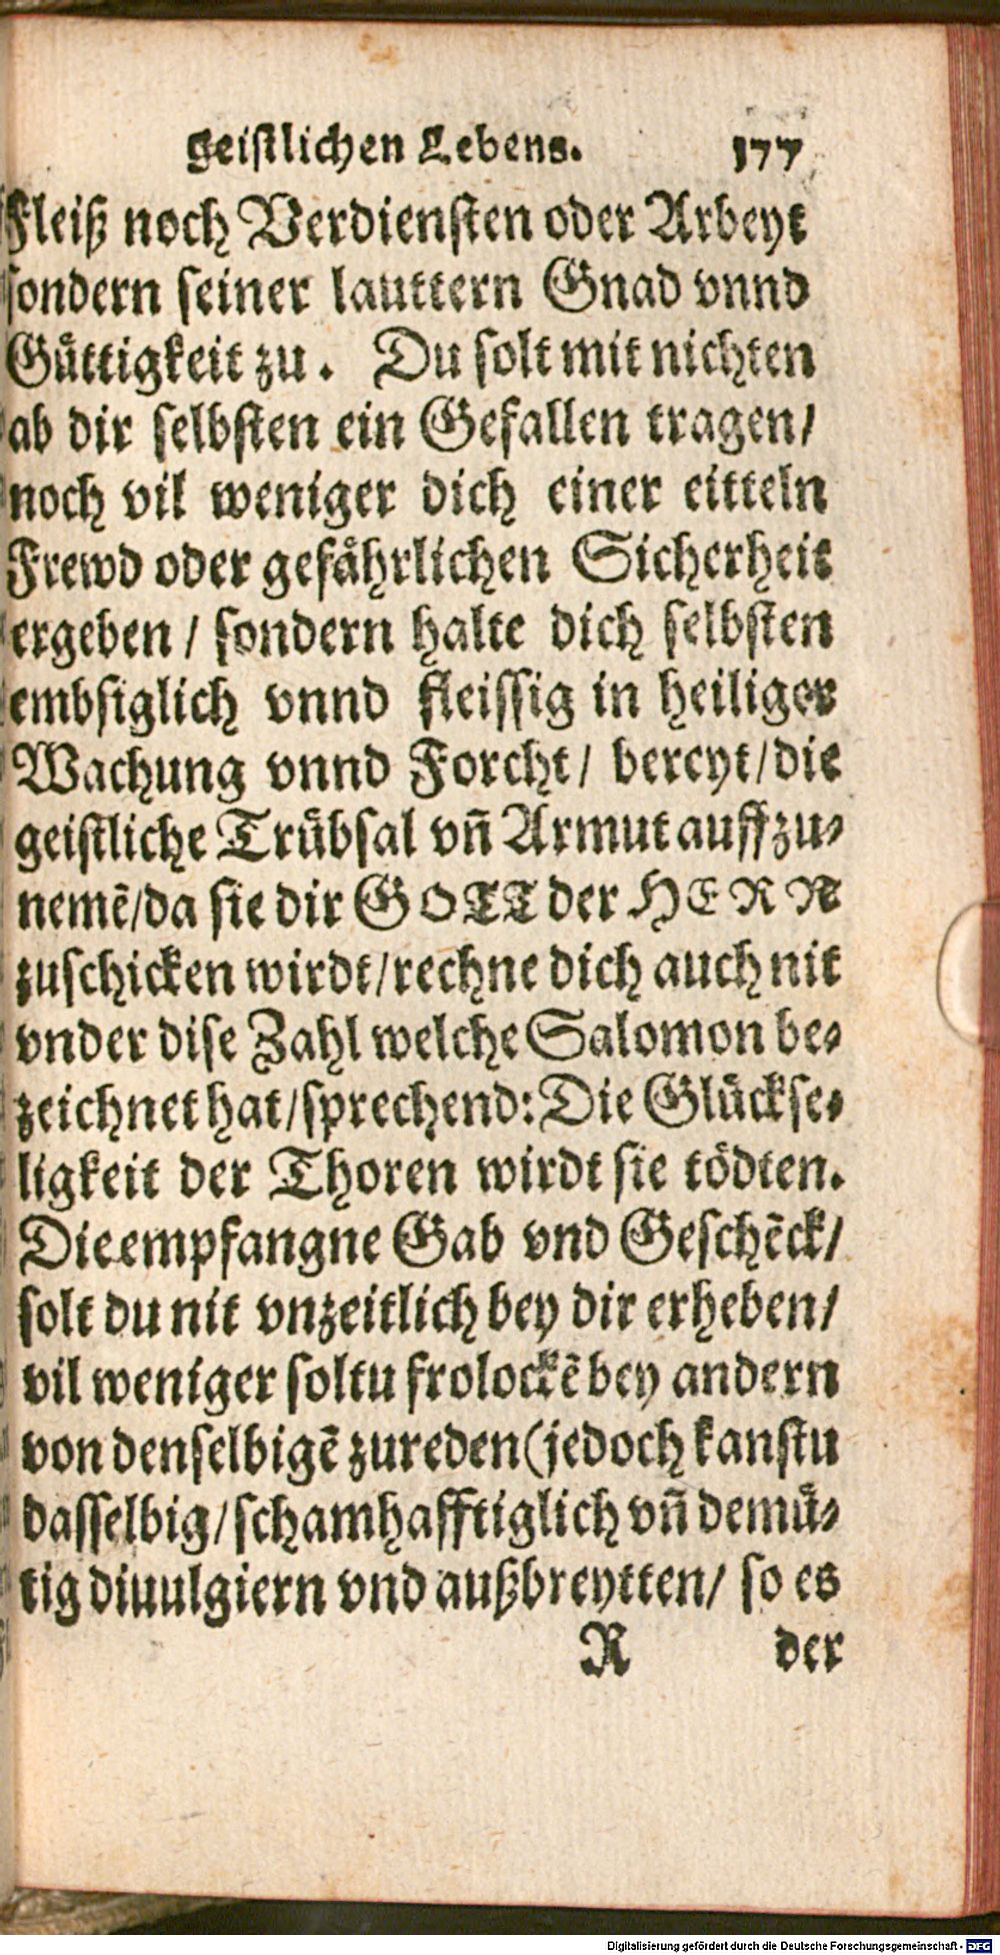 geistlichen Lebens. 177
Fleiß noch Verdiensten oder Arbeyt
sondern seiner lauttern Gnad vnnd
Gůttigkeit zu. Du solt mit nichten
ab dir selbsten ein Gefallen tragen/
noch vil weniger dich einer eitteln
Frewd oder gefåhrlichen Sicherheit
ergeben / sondern halte dich selbsten
embsiglich vnnd fleissig in heiliger
Wachung vnnd Forcht/ bereyt/die
geistliche Trůbsal vñ Armut auffzu-
nemẽ/da sie dir GOTT der HERR
zuschicken wirdt/rechne dich auch nit
vnder dise Zahl welche Salomon be-
zeichnet hat/sprechend: Die Glůckse-
ligkeit der Thoren wirdt sie tödten.
Die empfangne Gab vnd Geschẽck/
solt du nit vnzeitlich bey dir erheben/
vil weniger soltu frolockẽ bey andern
von denselbigẽ zureden (jedoch kanstu
dasselbig/schamhafftiglich vñ demů-
tig diuulgiern vnd außbreytten/ so es
R der
Digitalisierung gefördert durch die Deutsche Forschungsgemeinschaft - DFG